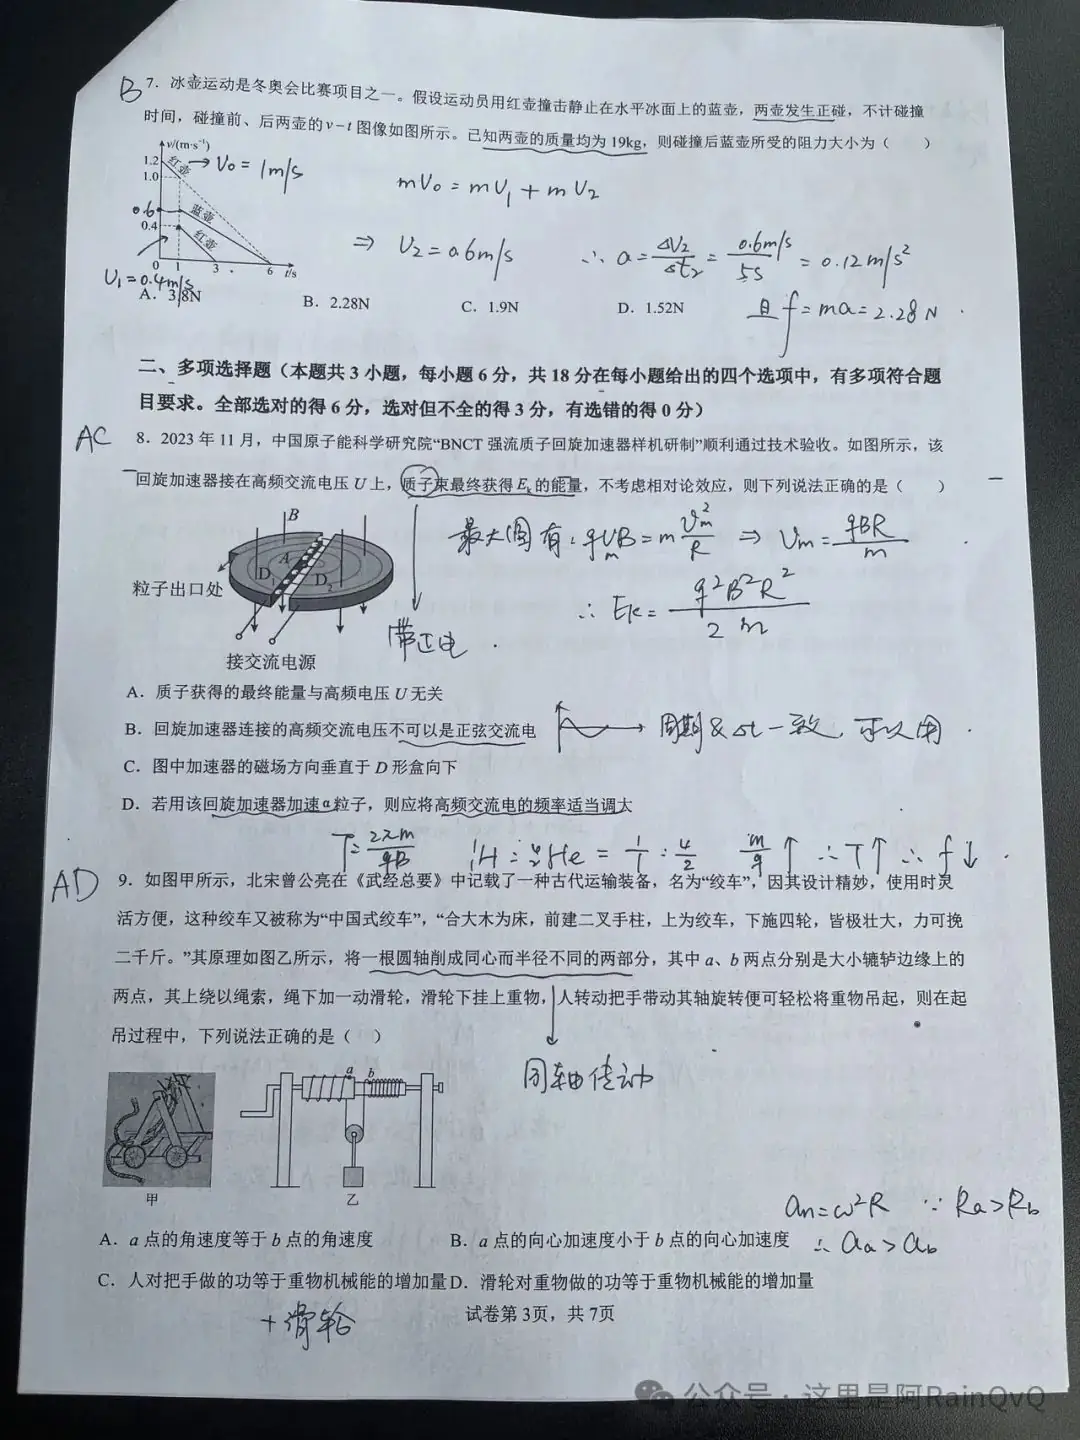 B 7．冰壶运动是冬奥会比赛项目之一。假设运动员用红壶撞击静止在水平冰面上的蓝壶，两壶发生正碰，不计碰撞
时间，碰撞前、后两壶的v－t图像如图所示。已知两壶的质量均为19kg，则碰撞后蓝壶所受的阻力大小为（　　）
v/(m·s⁻¹)
1.2
红壶
→ V₀ = 1m/s
1.0
mV₀ = mV₁ + mV₂
0.6
蓝壶
0.4
红壶
⇒ V₂ = 0.6m/s
∴ a = ΔV₂/Δt₂ = 0.6m/s/5s = 0.12m/s²
0 1 3 6 t/s
V₁=0.4m/s
A．3.8N B．2.28N C．1.9N D．1.52N
且 f = ma = 2.28N
二、多项选择题（本题共3小题，每小题6分，共18分在每小题给出的四个选项中，有多项符合题
目要求。全部选对的得6分，选对但不全的得3分，有选错的得0分）
AC 8．2023年11月，中国原子能科学研究院“BNCT强流质子回旋加速器样机研制”顺利通过技术验收。如图所示，该
回旋加速器接在高频交流电压U上，质子束最终获得Eₖ的能量，不考虑相对论效应，则下列说法正确的是（　　）
B
A
D₁
D₂
粒子出口处
接交流电源
带正电
最大圆有：qVₘB = m Vₘ²/R ⇒ Vₘ = qBR/m
∴ Eₖ = q²B²R²/2m
A．质子获得的最终能量与高频电压U无关
B．回旋加速器连接的高频交流电压不可以是正弦交流电
→ 周期&Δt一致，可以用
C．图中加速器的磁场方向垂直于D形盒向下
D．若用该回旋加速器加速α粒子，则应将高频交流电的频率适当调大
T = 2πm/qB ¹₁H : ⁴₂He = 1/1 : 4/2 m/q↑ ∴T↑ ∴f↓
AD 9．如图甲所示，北宋曾公亮在《武经总要》中记载了一种古代运输装备，名为“绞车”，因其设计精妙，使用时灵
活方便，这种绞车又被称为“中国式绞车”，“合大木为床，前建二叉手柱，上为绞车，下施四轮，皆极壮大，力可挽
二千斤。”其原理如图乙所示，将一根圆轴削成同心而半径不同的两部分，其中a、b两点分别是大小辘轳边缘上的
两点，其上绕以绳索，绳下加一动滑轮，滑轮下挂上重物，人转动把手带动其轴旋转便可轻松将重物吊起，则在起
吊过程中，下列说法正确的是（　　）
同轴传动
a b
甲
乙
aₙ=ω²R ∵ Ra>Rb
A．a点的角速度等于b点的角速度 B．a点的向心加速度小于b点的向心加速度
∴ aa>ab
C．人对把手做的功等于重物机械能的增加量 D．滑轮对重物做的功等于重物机械能的增加量
+滑轮
试卷第3页，共7页
公众号 · 这里是阿RainQvQ